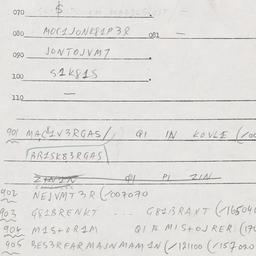 070 $
080 MOC1JONK81P3R 081 —
090 JONTOJVM7
100 S1K81S
110 —
901 MAC1V3RGAS/ QI IN KOVLE (/00
BR1SK83RGAS
QI PI ZIN
902 NEJVMT3R (/007070
903 G81BRENKT ... G81BRANT (/165040
904 M1S+OR1M QI P M1S+OJRER (170
905 BES3RFARMAJNMAM1N (/121100 (/157020